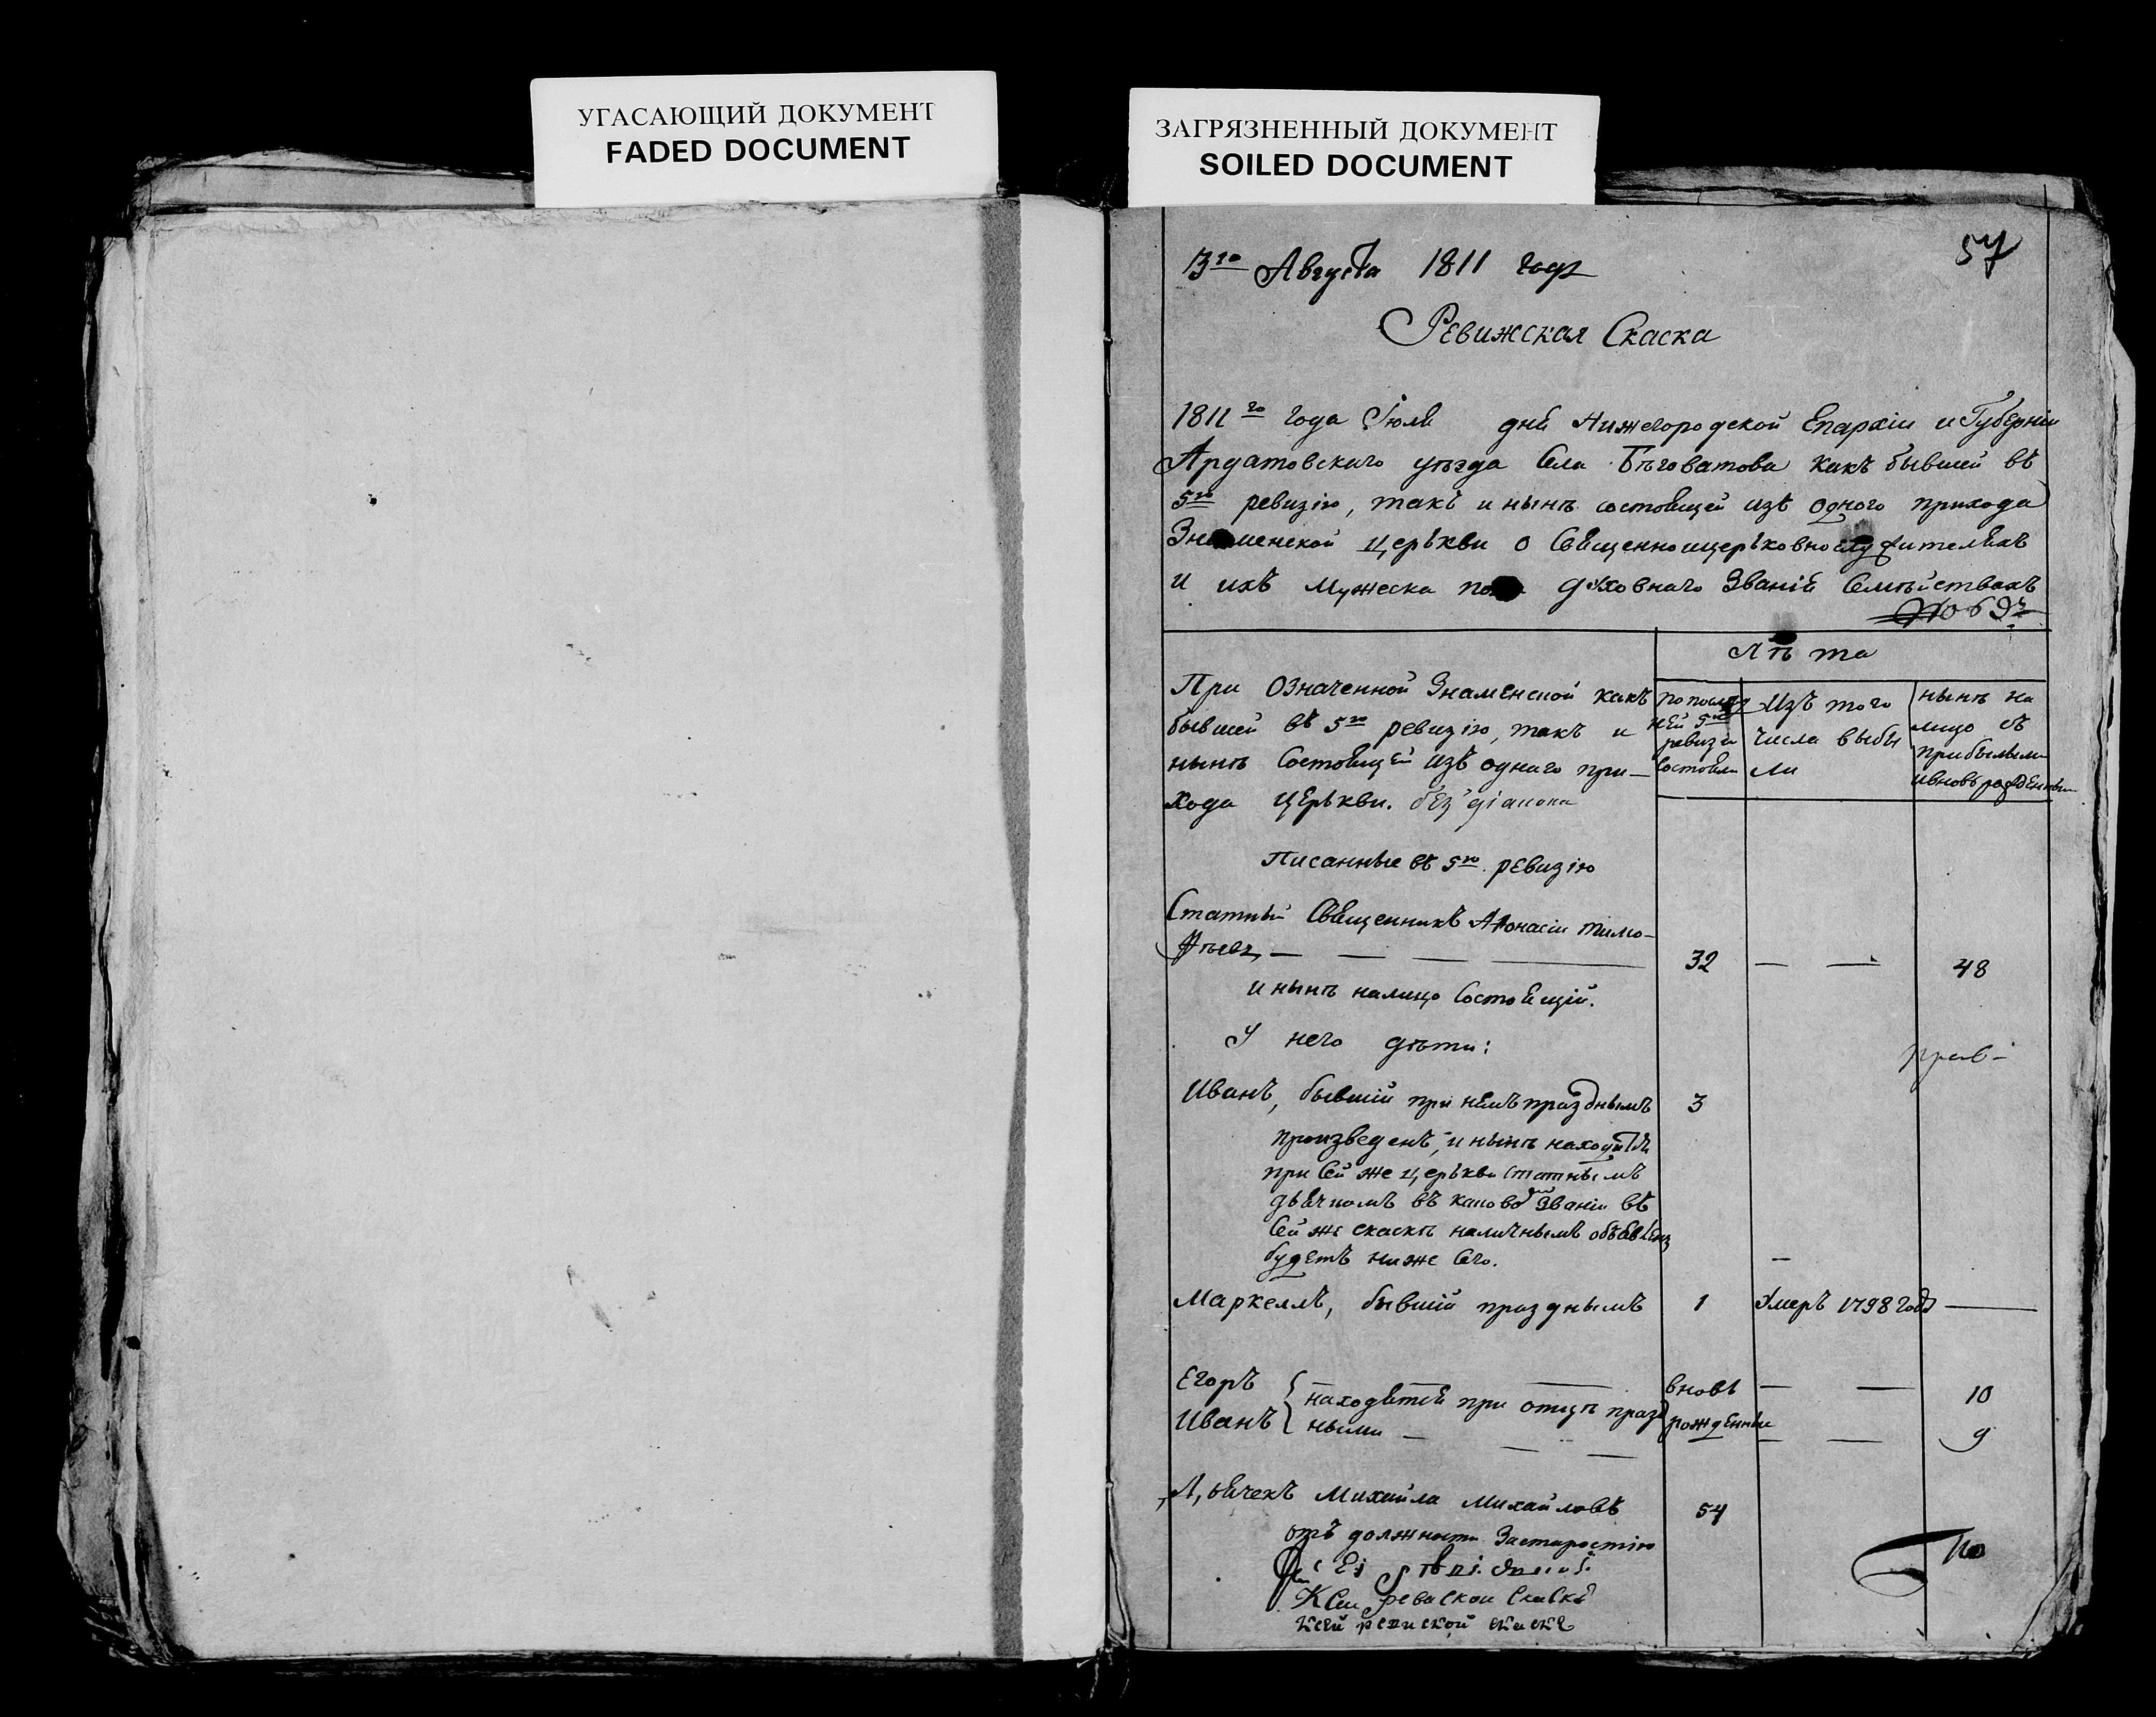 УГАСАЮЩИЙ ДОКУМЕНТ
FADED DOCUMENT
ЗАГРЯЗНЕННЫЙ ДОКУМЕНТ
SOILED DOCUMENT
57
3го Августа 1811 года
Ревижская Скаска
1811го года Июля дня Нижегородской Епархіи и Губерніи
Ардатовскаго уѣзда Села Бѣговатова какъ бывшей въ
5ю ревизію, такъ и нынѣ состоящей изъ одного прихода
Знаменской церькви о Священноицерьковнослужителяхъ
и ихъ мужеска пола духовнаго Званія Семѣйствахъ
Лѣта
При Означенной Знаменской какъ
бывшей въ 5ю ревизію, такъ и
нынѣ Состоящей изъ одного при-
хода церькви. без діакона
по послѣд
ней 5й
ревизіи
Состояли
Изъ того
числа выбы
ли
нынѣ на
лицо съ
прибылыми
и вновь рожденным
Писанные въ 5ю ревизію
Статный Священникъ Афонасіи Тимо-
фѣевъ — — — — 32 — — 48
и нынѣ налицо Состоящій.
У него дѣти:
Иванъ, бывшій при немъ празднымъ 3
произведенъ, и нынѣ находится
при Сей же церькви Статнымъ
дьячкомъ въ каковомъ Званіи въ
Сей же скаскѣ наличнымъ объявленъ
будетъ ниже Сего. —
Маркеллъ, бывшій празднымъ 1 Умеръ 1798 года —
Егоръ — — вновь — — 10
Иванъ находятся при отцѣ празд
ными — — — рожденные — — 9
Дьячекъ Михайла Михайловъ 54
отъ должности Застаростію
К Сеи ревиской Скаске
к сей ревиской скаске